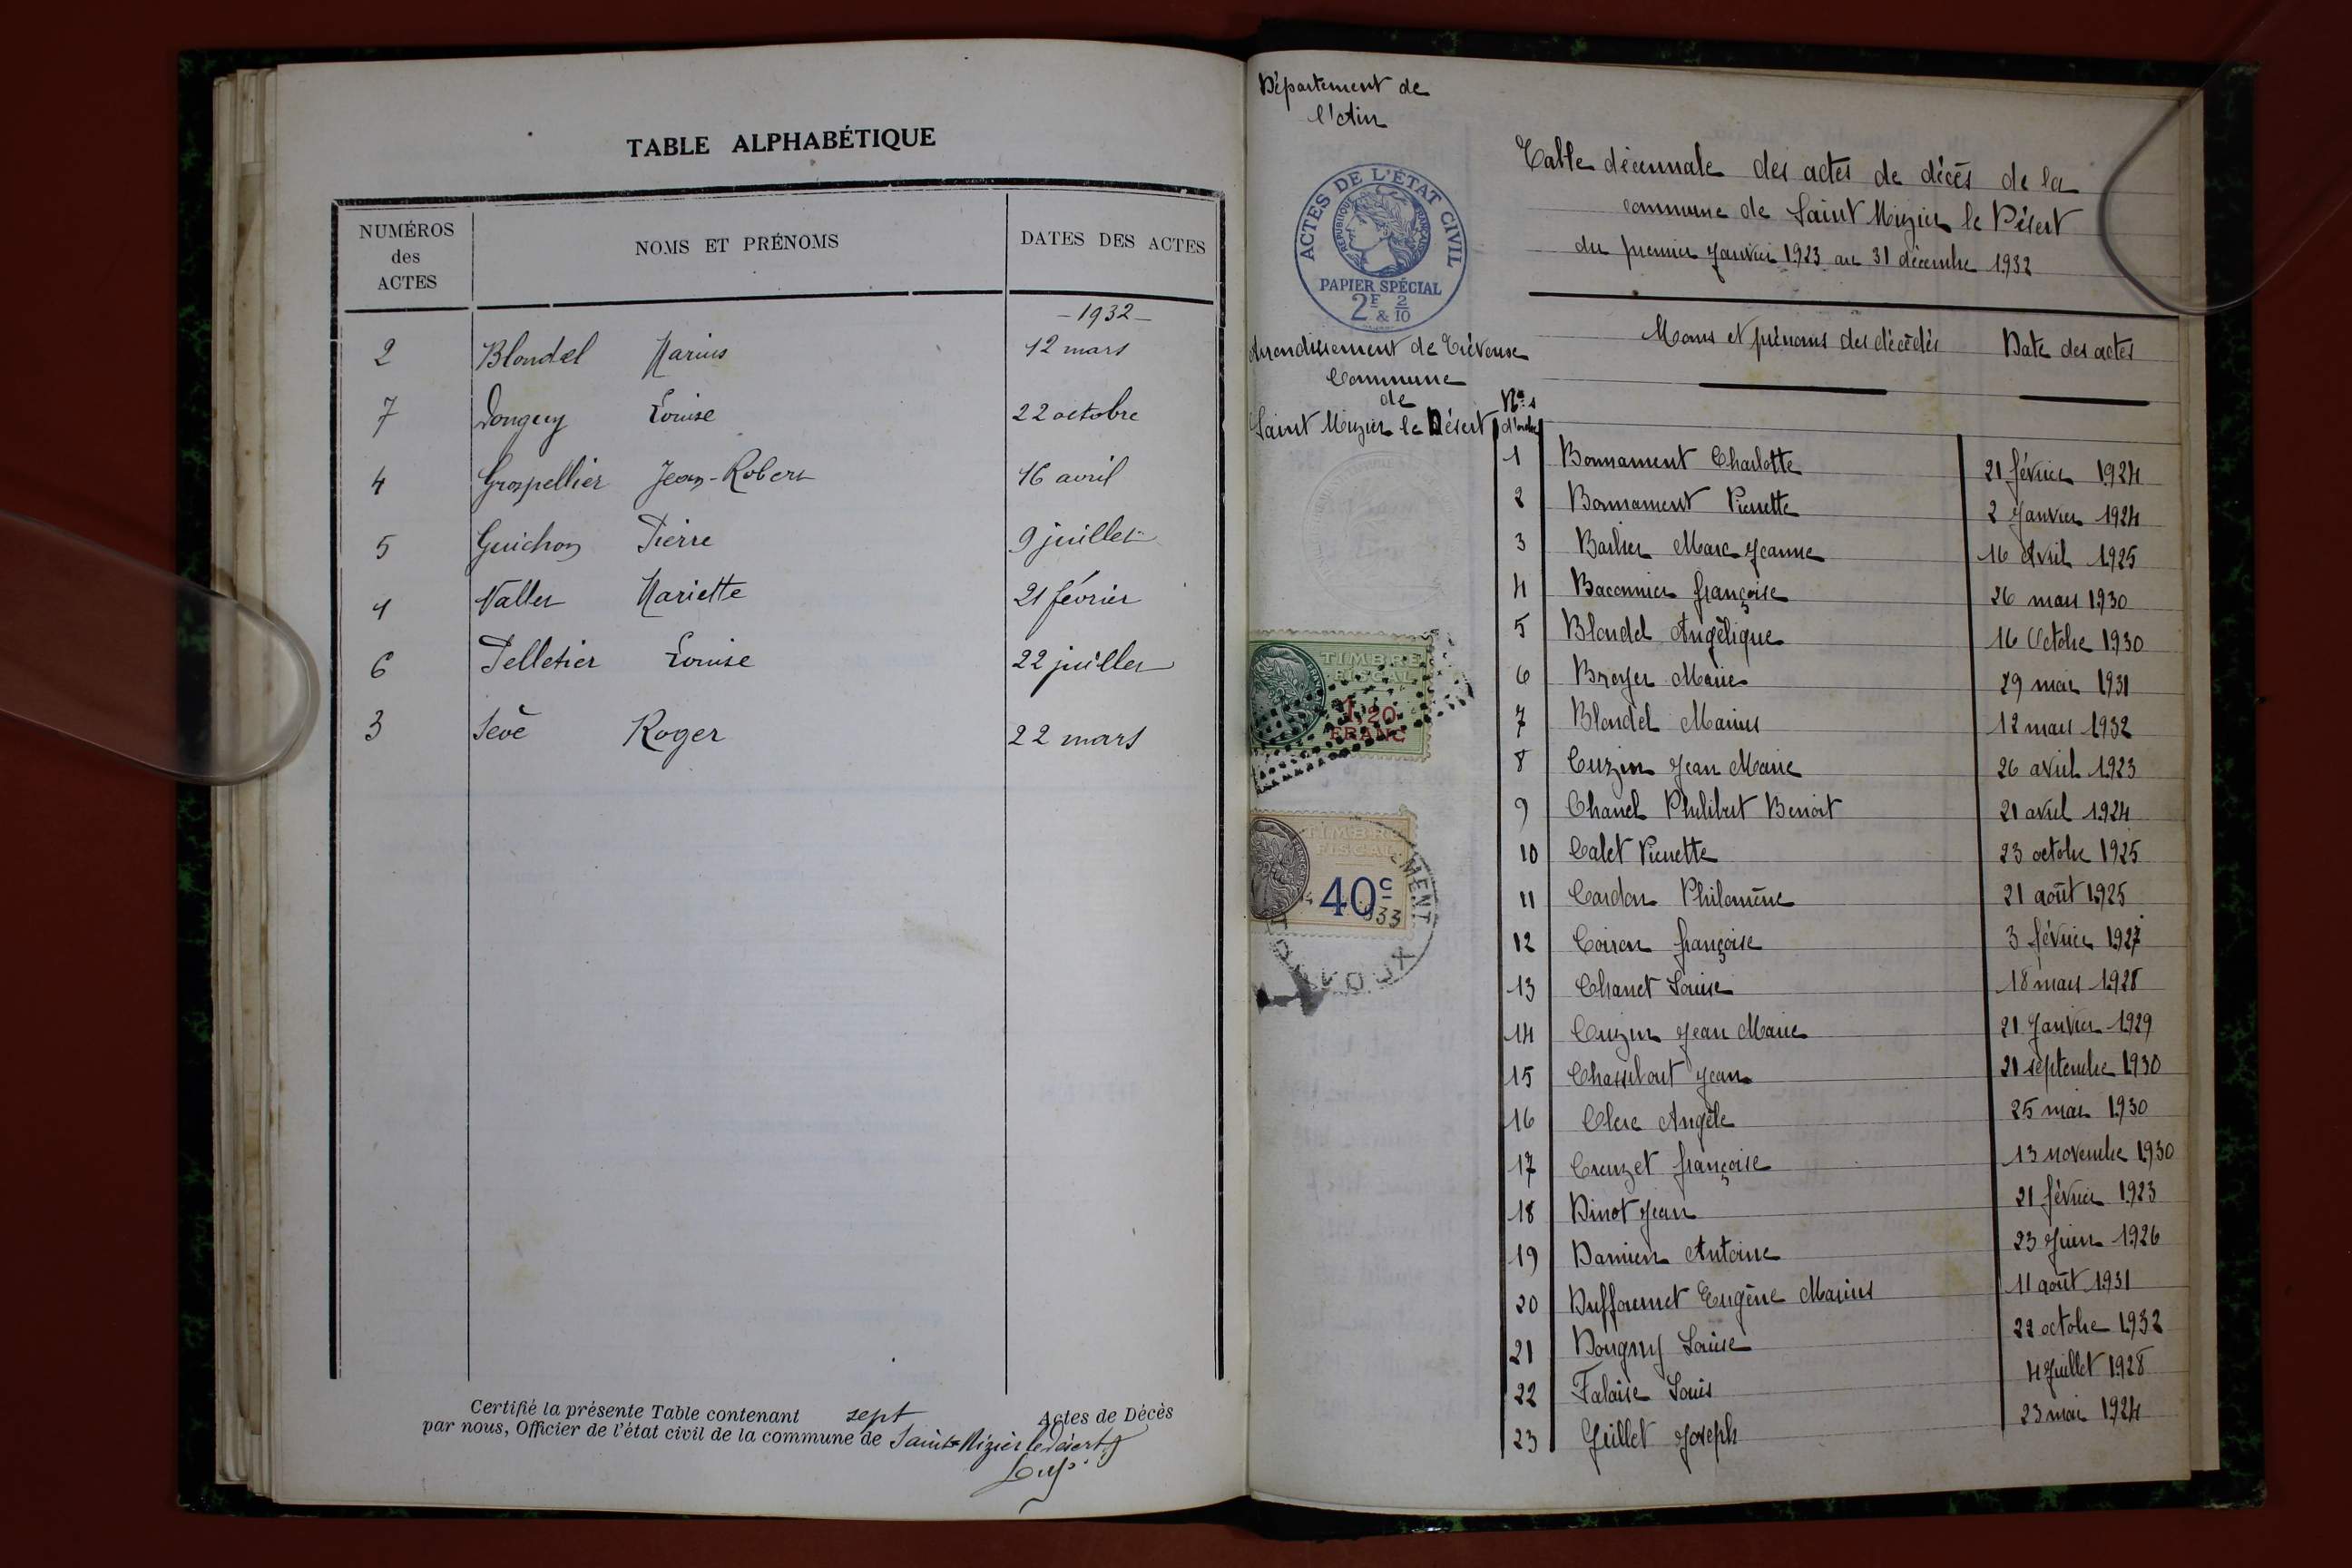 TABLE ALPHABÉTIQUE
NUMÉROS des ACTES
NOMS ET PRÉNOMS
DATES DES ACTES
- 1932 -
2 Blondel Marius 12 mars
7 Donguy Louise 22 octobre
4 Grospellier Jean-Robert 16 avril
5 Guichon Pierre 9 juillet
1 Nallet Mariette 21 février
6 Pelletier Louise 22 juillet
3 Sève Roger 22 mars
Certifié la présente Table contenant sept Actes de Décès
par nous, Officier de l'état civil de la commune de Saint-Nizier le Désert
Département de
l'Ain
ACTES DE L'ÉTAT CIVIL
RÉPUBLIQUE FRANÇAISE
PAPIER SPÉCIAL
2F & 2/10
Arrondissement de Trévoux
Commune
de
Saint Nizier le Désert
TIMBRE
FISCAL
1,20
FRANC
TIMBRE
FISCAL
40c
933
Table décennale des actes de décès de la
commune de Saint Nizier le Désert
du premier Janvier 1923 au 31 décembre 1932
Nos d'ordre
Noms et prénoms des décédés
Date des actes
1 Bonnament Charlotte 21 février 1924
2 Bonnament Pierrette 2 Janvier 1924
3 Barlier Marc Jeanne 16 Avril 1925
4 Baconnier françoise 26 mars 1930
5 Blondel Angèlique 16 Octobre 1930
6 Broyer Marie 29 mai 1931
7 Blondel Marius 12 mars 1932
8 Cuzin Jean Marie 26 avril 1923
9 Chanel Philibert Benoit 21 avril 1924
10 Calet Pierrette 23 octobre 1925
11 Cardon Philomène 21 août 1925
12 Coiron françoise 3 février 1927
13 Chanet Louise 18 mars 1928
14 Cuzin Jean Marie 21 Janvier 1929
15 Chasselout Jean 21 septembre 1930
16 Clerc Angèle 25 mai 1930
17 Creuzet françoise 13 novembre 1930
18 Dinot Jean 21 février 1923
19 Damien Antoine 23 Juin 1926
20 Duffournet Eugène Marius 11 août 1931
21 Donguy Louise 22 octobre 1932
22 Falaise Louis 4 Juillet 1928
23 Guillet Joseph 23 mai 1924